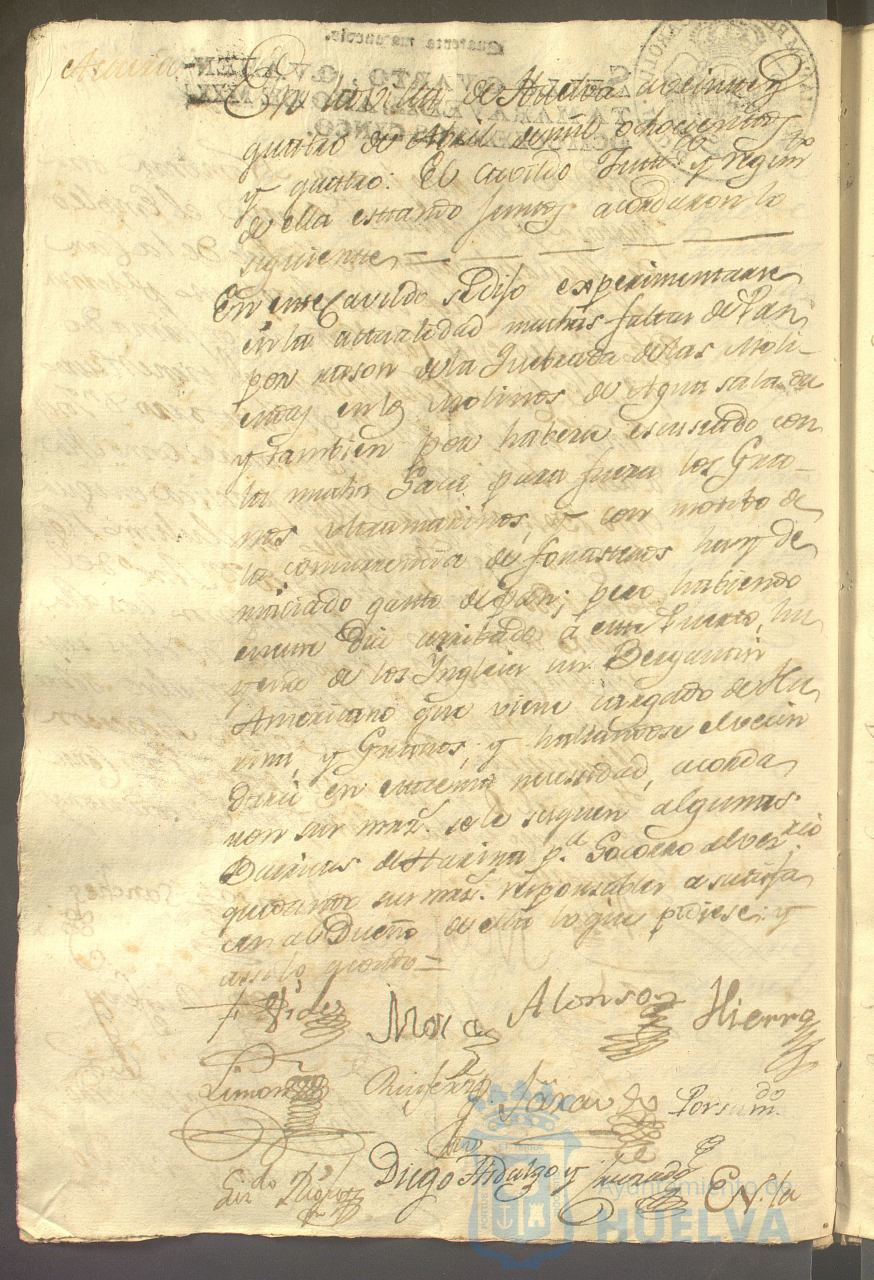 Acuerdo
En la villa de Huelva a veinte y
quatro de Abril de mil ochocientos
y quatro: El cavildo Just.ª y regim.to
de ella estando juntos acordaron lo
siguiente =
En este Cavildo se dijo experimentarse
en la actualidad muchas faltas de Pan
por razon de la Quebrada de las Moli-
endas en los Molinos de Agua salada
y tambien por haberse escuseado con
la mucha Saca para fuera los Gra-
nos ultramarinos, y con motibo de
la concurrencia de forasteros hay de
maciado gasto de Pan; pero habiendo
en este dia arribado á este Puerto, hu
yendo de los Ingleses un Bergantin
Americano que viene cargado de Ha
rina, y Granos y hallandose el vecin
dario en extrema necesidad, acorda
ron sus mrzs. se le saquen algunas
Barricas de Harina p.ª Socorro del vez.rio
quedando sus mrzs. responsables a satisfa
cer al Dueño de ella lo que pidiese: y
assi lo acordo =
Mora Alonso Hierro
Limon
Por su m.do
Diego Hidalgo y
Ayuntamiento de
HUELVA